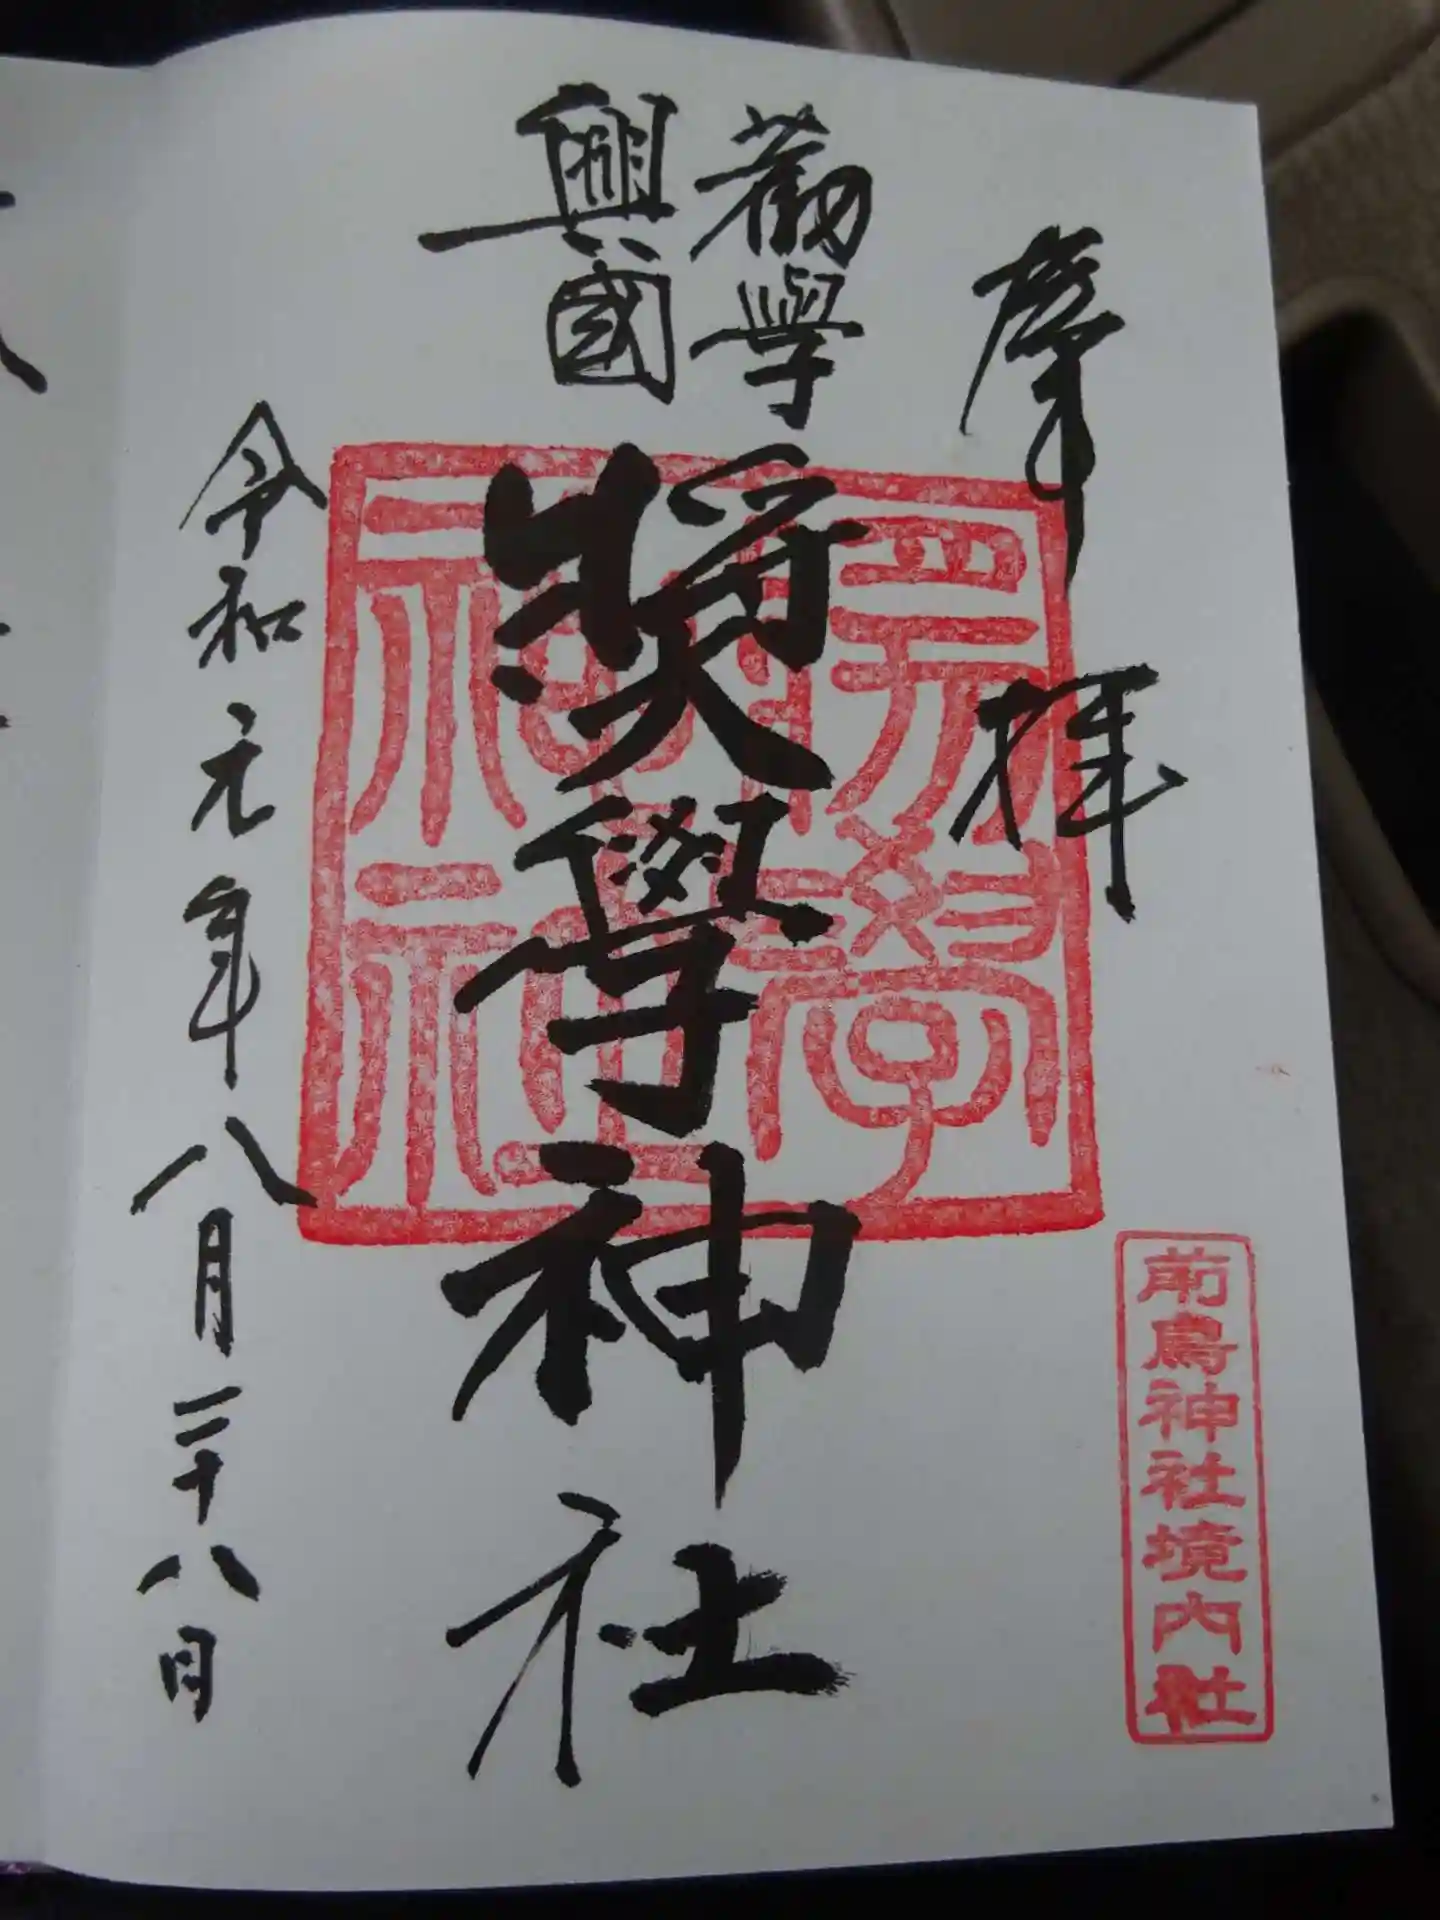 奉拝
勸學
興國
奬學神社
令和元年八月二十八日
前鳥神社境内社